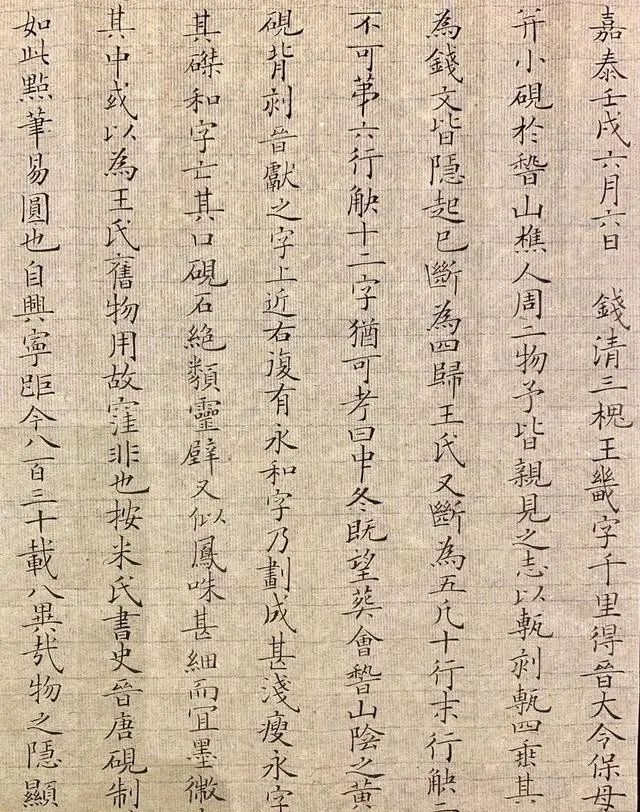 嘉泰壬戌六月六日　錢清三槐王畿字千里得晉大令保母
并小硯於稽山樵人周二物予皆親見之志以甎刻甎四垂其
為錢文皆隱起已斷為四歸王氏又斷為五凡十行末行缺二
不可苐六行缺十二字猶可考曰中冬既望葬會稽山陰之黃
硯背刻晉獻之字上近右復有永和字乃劃成甚淺瘦永字
其磔和字亡其口硯石絕類靈壁又似鳳咮甚細而宜墨微
其中或以為王氏舊物用故窪非也按米氏書史晉唐硯制
如此點筆易圓也自興寧距今八百三十載八異哉物之隱顯